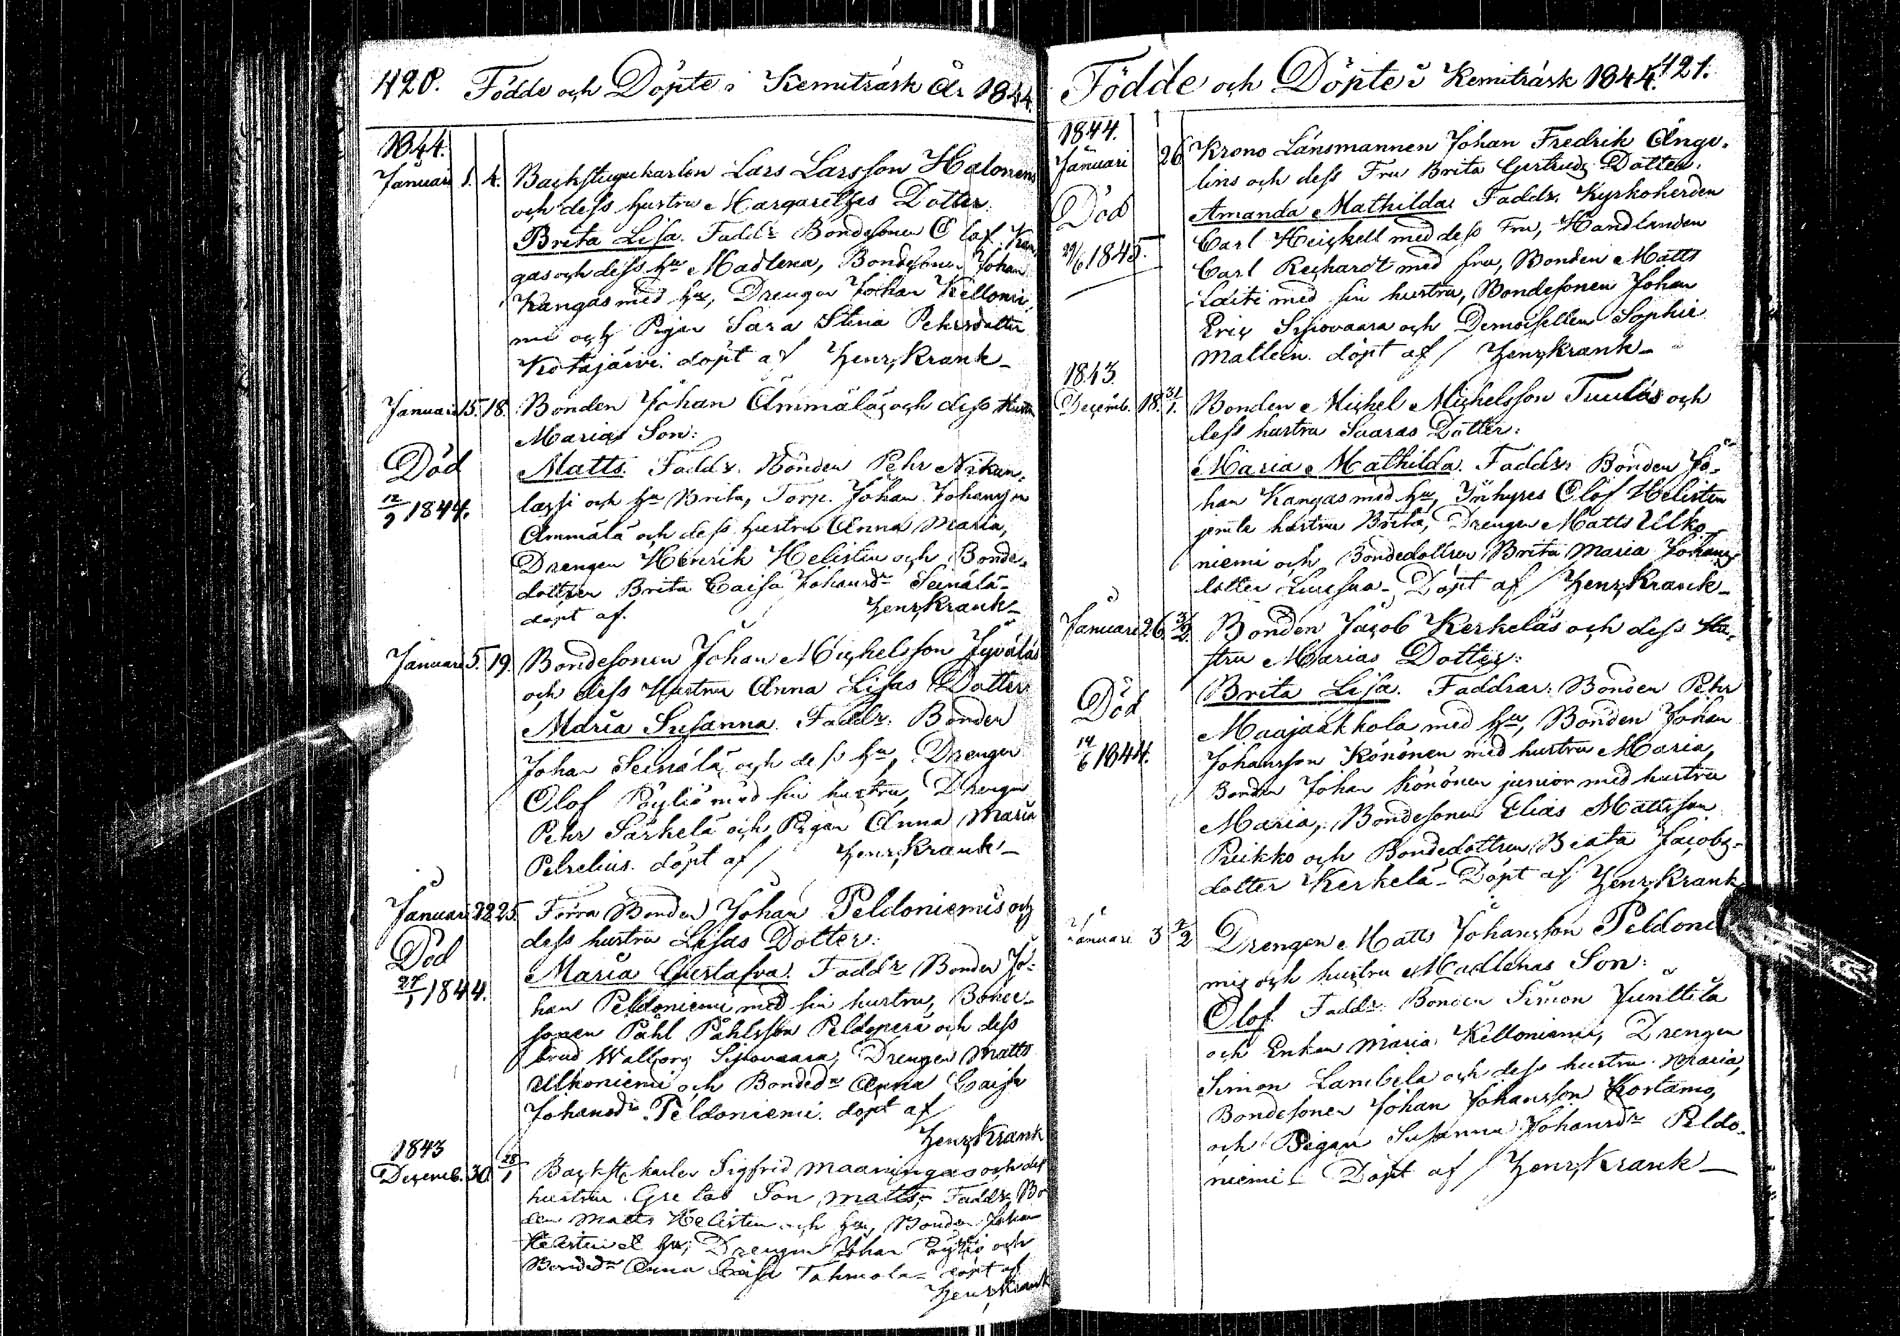 420. Födde och Döpte i Kemiträsk År 1844.
1844.
Januari 1. 4. Backstugukarlen Lars Larsson Halonens
och dess hustru Margarethas Dotter
Brita Lisa. Faddr Bondesonen Olof Kan
gas och dess hu Madlena, Bondesonen Johan
Kangas med hu, Drengen Johan Kelloni
mi och Pigan Sara Stina Pehrsdotter
Kotajärvi. döpt af Henr. Krank
Januari 15. 18. Bonden Johan Ämmäläs och dess hustru
Marias Son:
Död Matts. Faddr. Bonden Pehr Nikun
12/9 1844. lassi och hu Brita, Torp. Johan Johansson
Ämmälä och dess hustru Anna Maria,
Drengen Henrik Helistin och Bonde-
dottren Brita Caisa Johansdr Seinälä
döpt af. Henr. Krank
Januari 5. 19. Bondesonen Johan Michelsson Jyväläs
och dess Hustru Anna Lisas Dotter
Maria Susanna. Faddr. Bonden
Johan Seinälä och dess hu, Drengen
Olof Pöyliö med sin hustru, Drengen
Pehr Särkelä och Pigan Anna Maria
Pelrelius. döpt af Henr. Krank
Januari 22. 25. Förra Bonden Johan Peldoniemis och
dess hustru Lisas Dotter:
Död Maria Gustafva. Faddr Bonden Jo-
27/1 1844. han Peldoniemi med sin hustru, Bonde-
sonen Påhl Påhlsson Peldoperä och dess
brud Walborg Sipovaara, Drengen Matts
Ulkoniemi och Bondedr Anna Caisa
Johansdr Peldoniemi. döpt af
Henr. Krank
1843
Decemb. 30. 28/1 Backst. karlen Sigfrid Maaningas och dess
hustru Gretas Son, Matts, Faddr. Bo
den Matts Helistin och hu, Bonden Johan
Helistin et hu, Drengen Johan Pöyliö och
Bondedr Anna Caisa Tohmola döpt af
Henr. Krank
Födde och Döpte i Kemiträsk 1844. 421.
1844.
Januari 26 Krono Länsmannen Johan Fredrik Ånge-
lins och dess Fru Brita Gertruds Dotter.
Död Amanda Mathilda. Faddr. Kyrkoherden
29/6 1845. Carl Heickell med dess Fru, Handlanden
Carl Reichardt med fru, Bonden Matts
Laiti med sin hustru, Bondesonen Johan
Eric Sipovaara och Demoisellen Sophie
Matlein. döpt af Henr. Krank
1843.
Decemb. 18. 31/1. Bonden Michel Michelsson Tuuläs och
dess hustru Saaras Dotter:
Maria Mathilda. Faddr: Bonden Jo-
han Kangas med hu, Inhyses Olof Helistin
jemte hustru Brita, Drengen Matts Ulko-
niemi och Bondedottren Brita Maria Johans
dotter Luusua. Döpt af Henr. Krank
Januari 26. 3/2. Bonden Jacob Kerkeläs och dess Hu-
stru Marias Dotter:
Död Brita Lisa. Faddrar: Bonden Pehr
14/6 1844. Maajaakkola med hu, Bonden Johan
Johansson Könönen med hustru Maria,
Bonden Johan Könönen junior med hustru
Maria, Bondesonen Elias Mattsson
Puikko och Bondedottren Beata Jacobs-
dotter Kerkelä. Döpt af Henr. Krank
Januari 3 3/2 Drengen Matts Johansson Peldonie
mis och hustru Madlenas Son:
Olof. Faddr. Bonden Simon Junttila
och Enkan Maria Kelloniemi, Drengen
Simon Lambela och dess hustru Maria,
Bondesonen Johan Johansson Kostamo,
och Pigan Susanna Johansdr Peldo-
niemi. Döpt af Henr. Krank